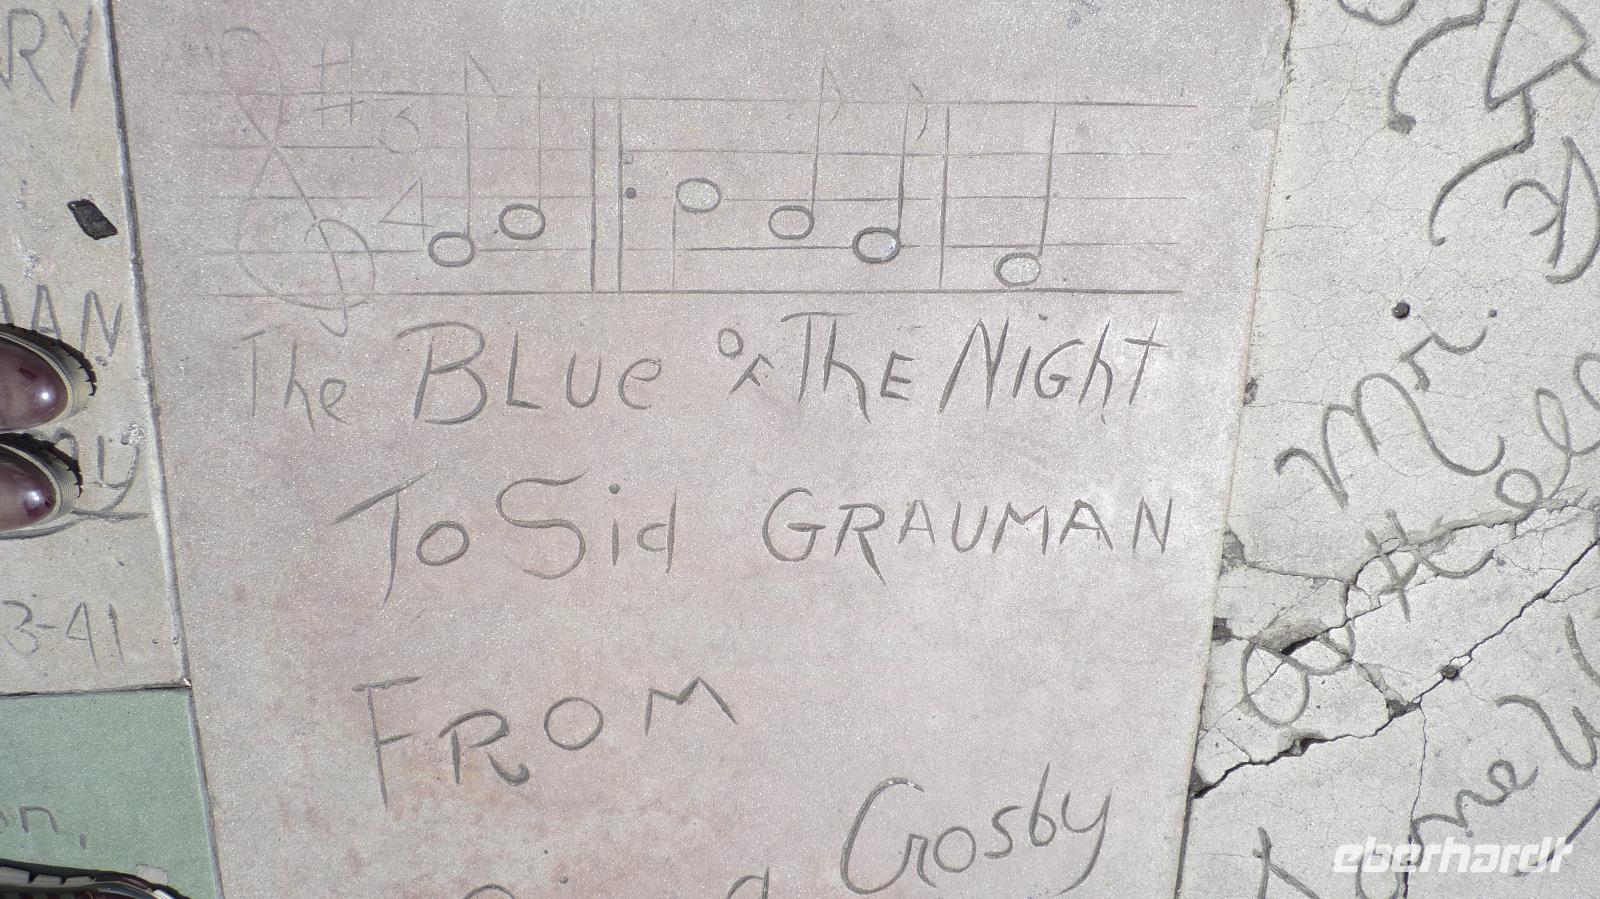 3
4
The BLUe OF ThE NIGht
To Sid GRAUMAN
FROM
Crosby
RY
MAN
3-41
on,
Mr.
eberhardt